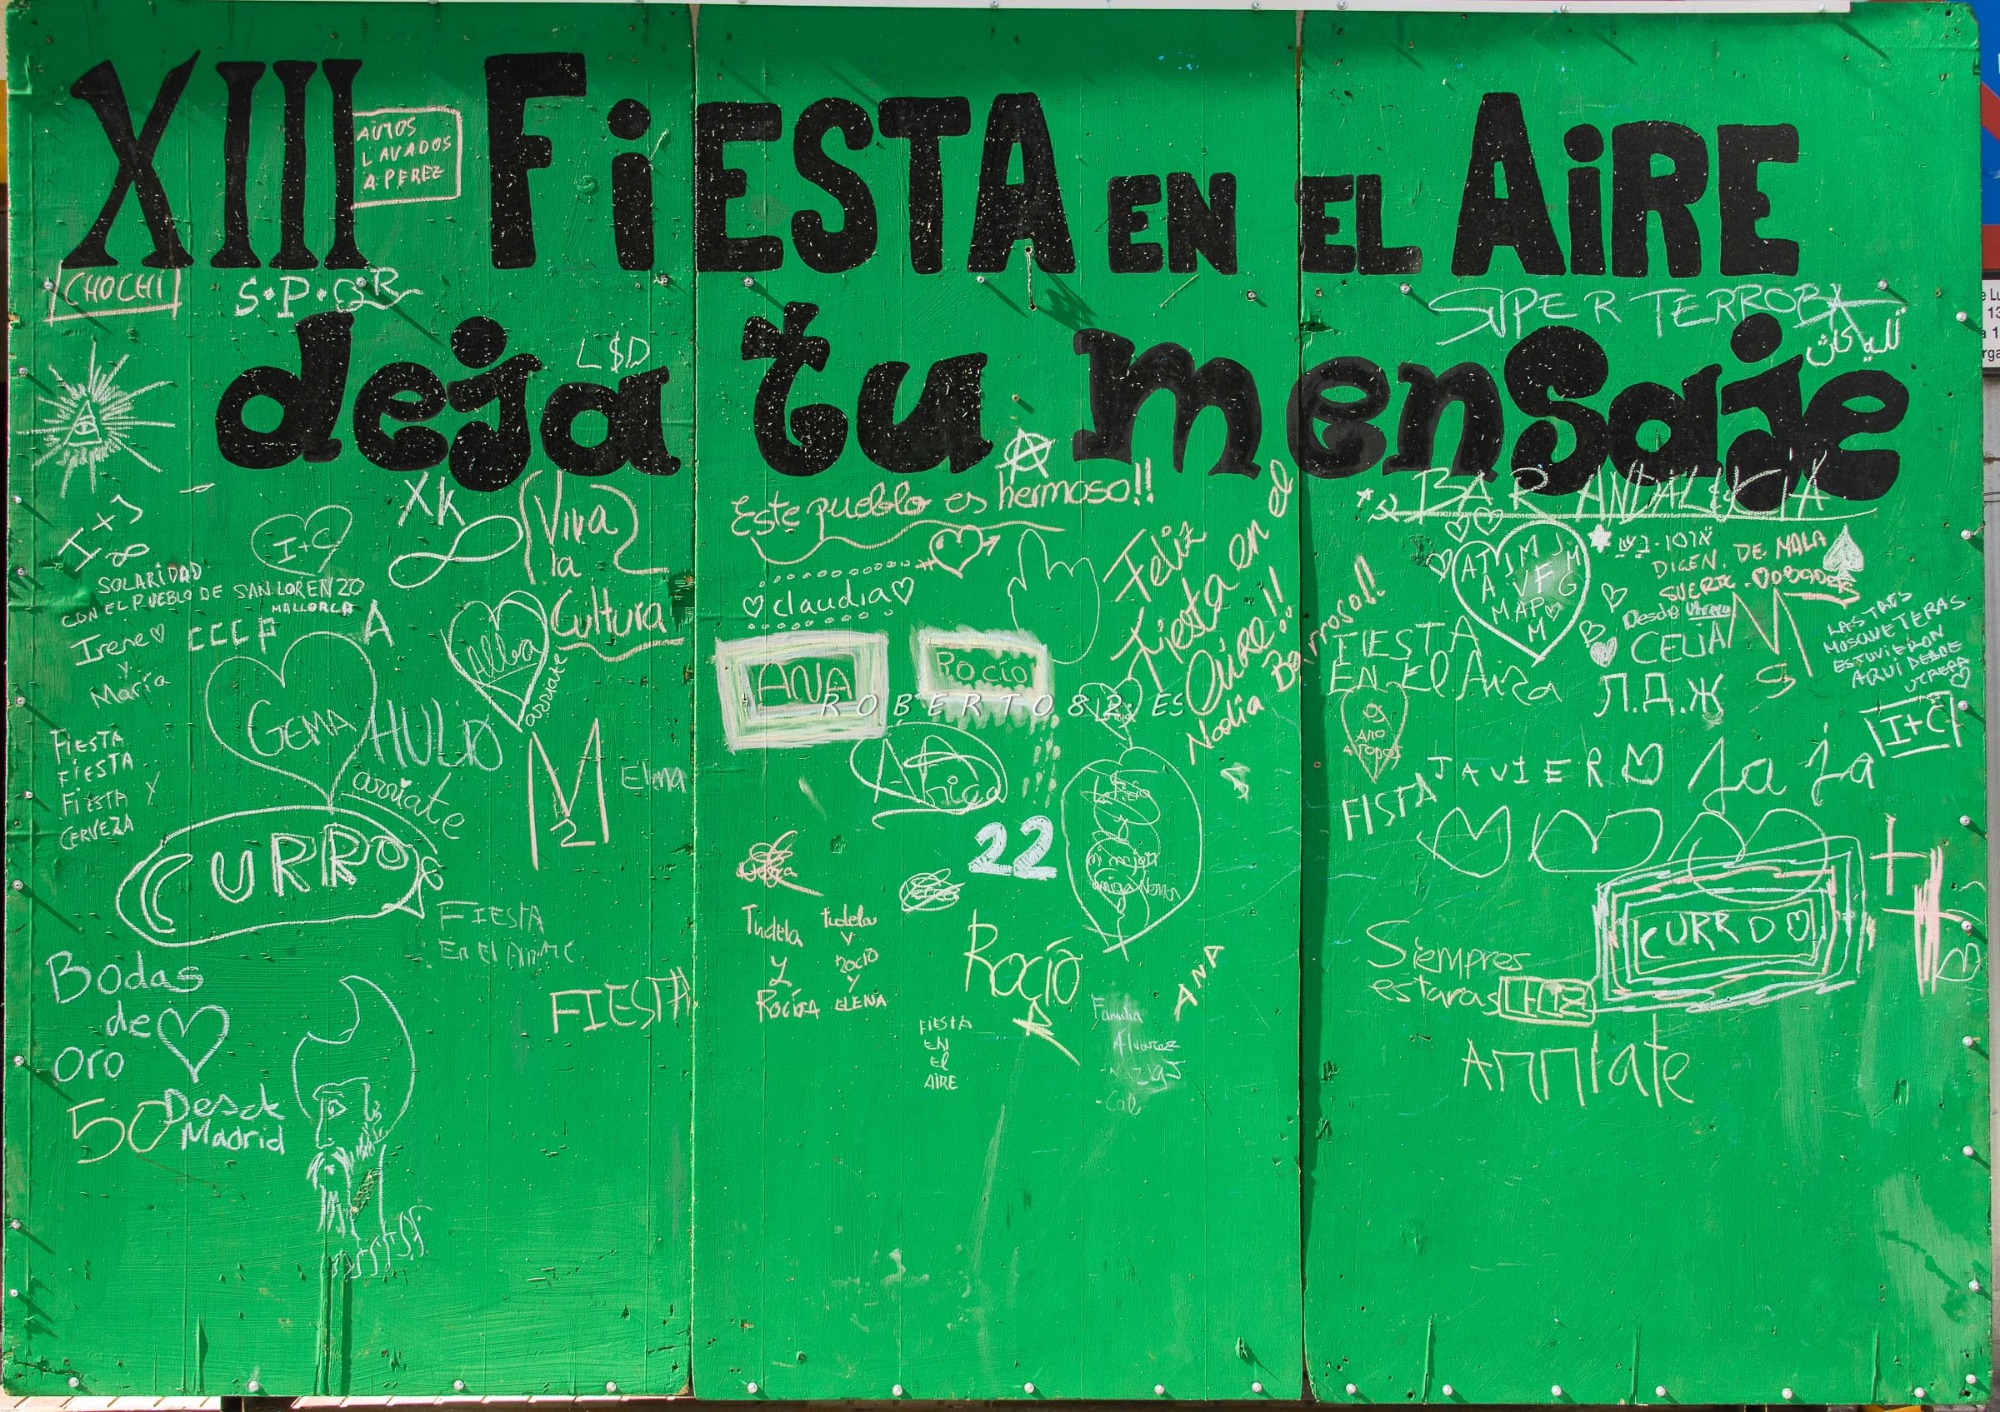 XIII FiESTA EN EL AiRE
deja tu mensaje
AUTOS
LAVADOS
A. PEREZ
CHOCHI
S·P·QR
L$D
SUPER TERROBA
XK
I+J
I+C
Viva
la
Cultura
SOLARIDAD
CON EL PUEBLO DE SAN LORENZO
MALLORCA
Irene
y
María
CCCP
A
Alba
arriate
GEMA
HULD
arriate
M
2
Elma
FIESTA
FIESTA
FIESTA Y
CERVEZA
CURRO
FIESTA
Bodas
de
oro
50
Desde
Madrid
FIESTA
Este pueblo es hermoso!!
claudia
ANA
Rocío
ROBERTO82.ES
Feliz
Fiesta en el
Aire!!
Nadia Barroso!!
22
Tudela
y
Rocío
tudela
y
Rocío
ELENA
Rocío
ANA
FIESTA
EN
El
AIRE
Familia
Alvarez
BAR ANDALUCIA
DICEN. DE MALA
SUERTE.
Desde Utrera
CELIA
Л.Д.Ж
M
LAS TRES
MOSQUETERAS
ESTUVIERON
AQUÍ DESDE
UTRERA
FIESTA
EN El Aire
I+C
JAVIER
Ja ja
FISTA
Siempres
estaras
CURRO
Arriate